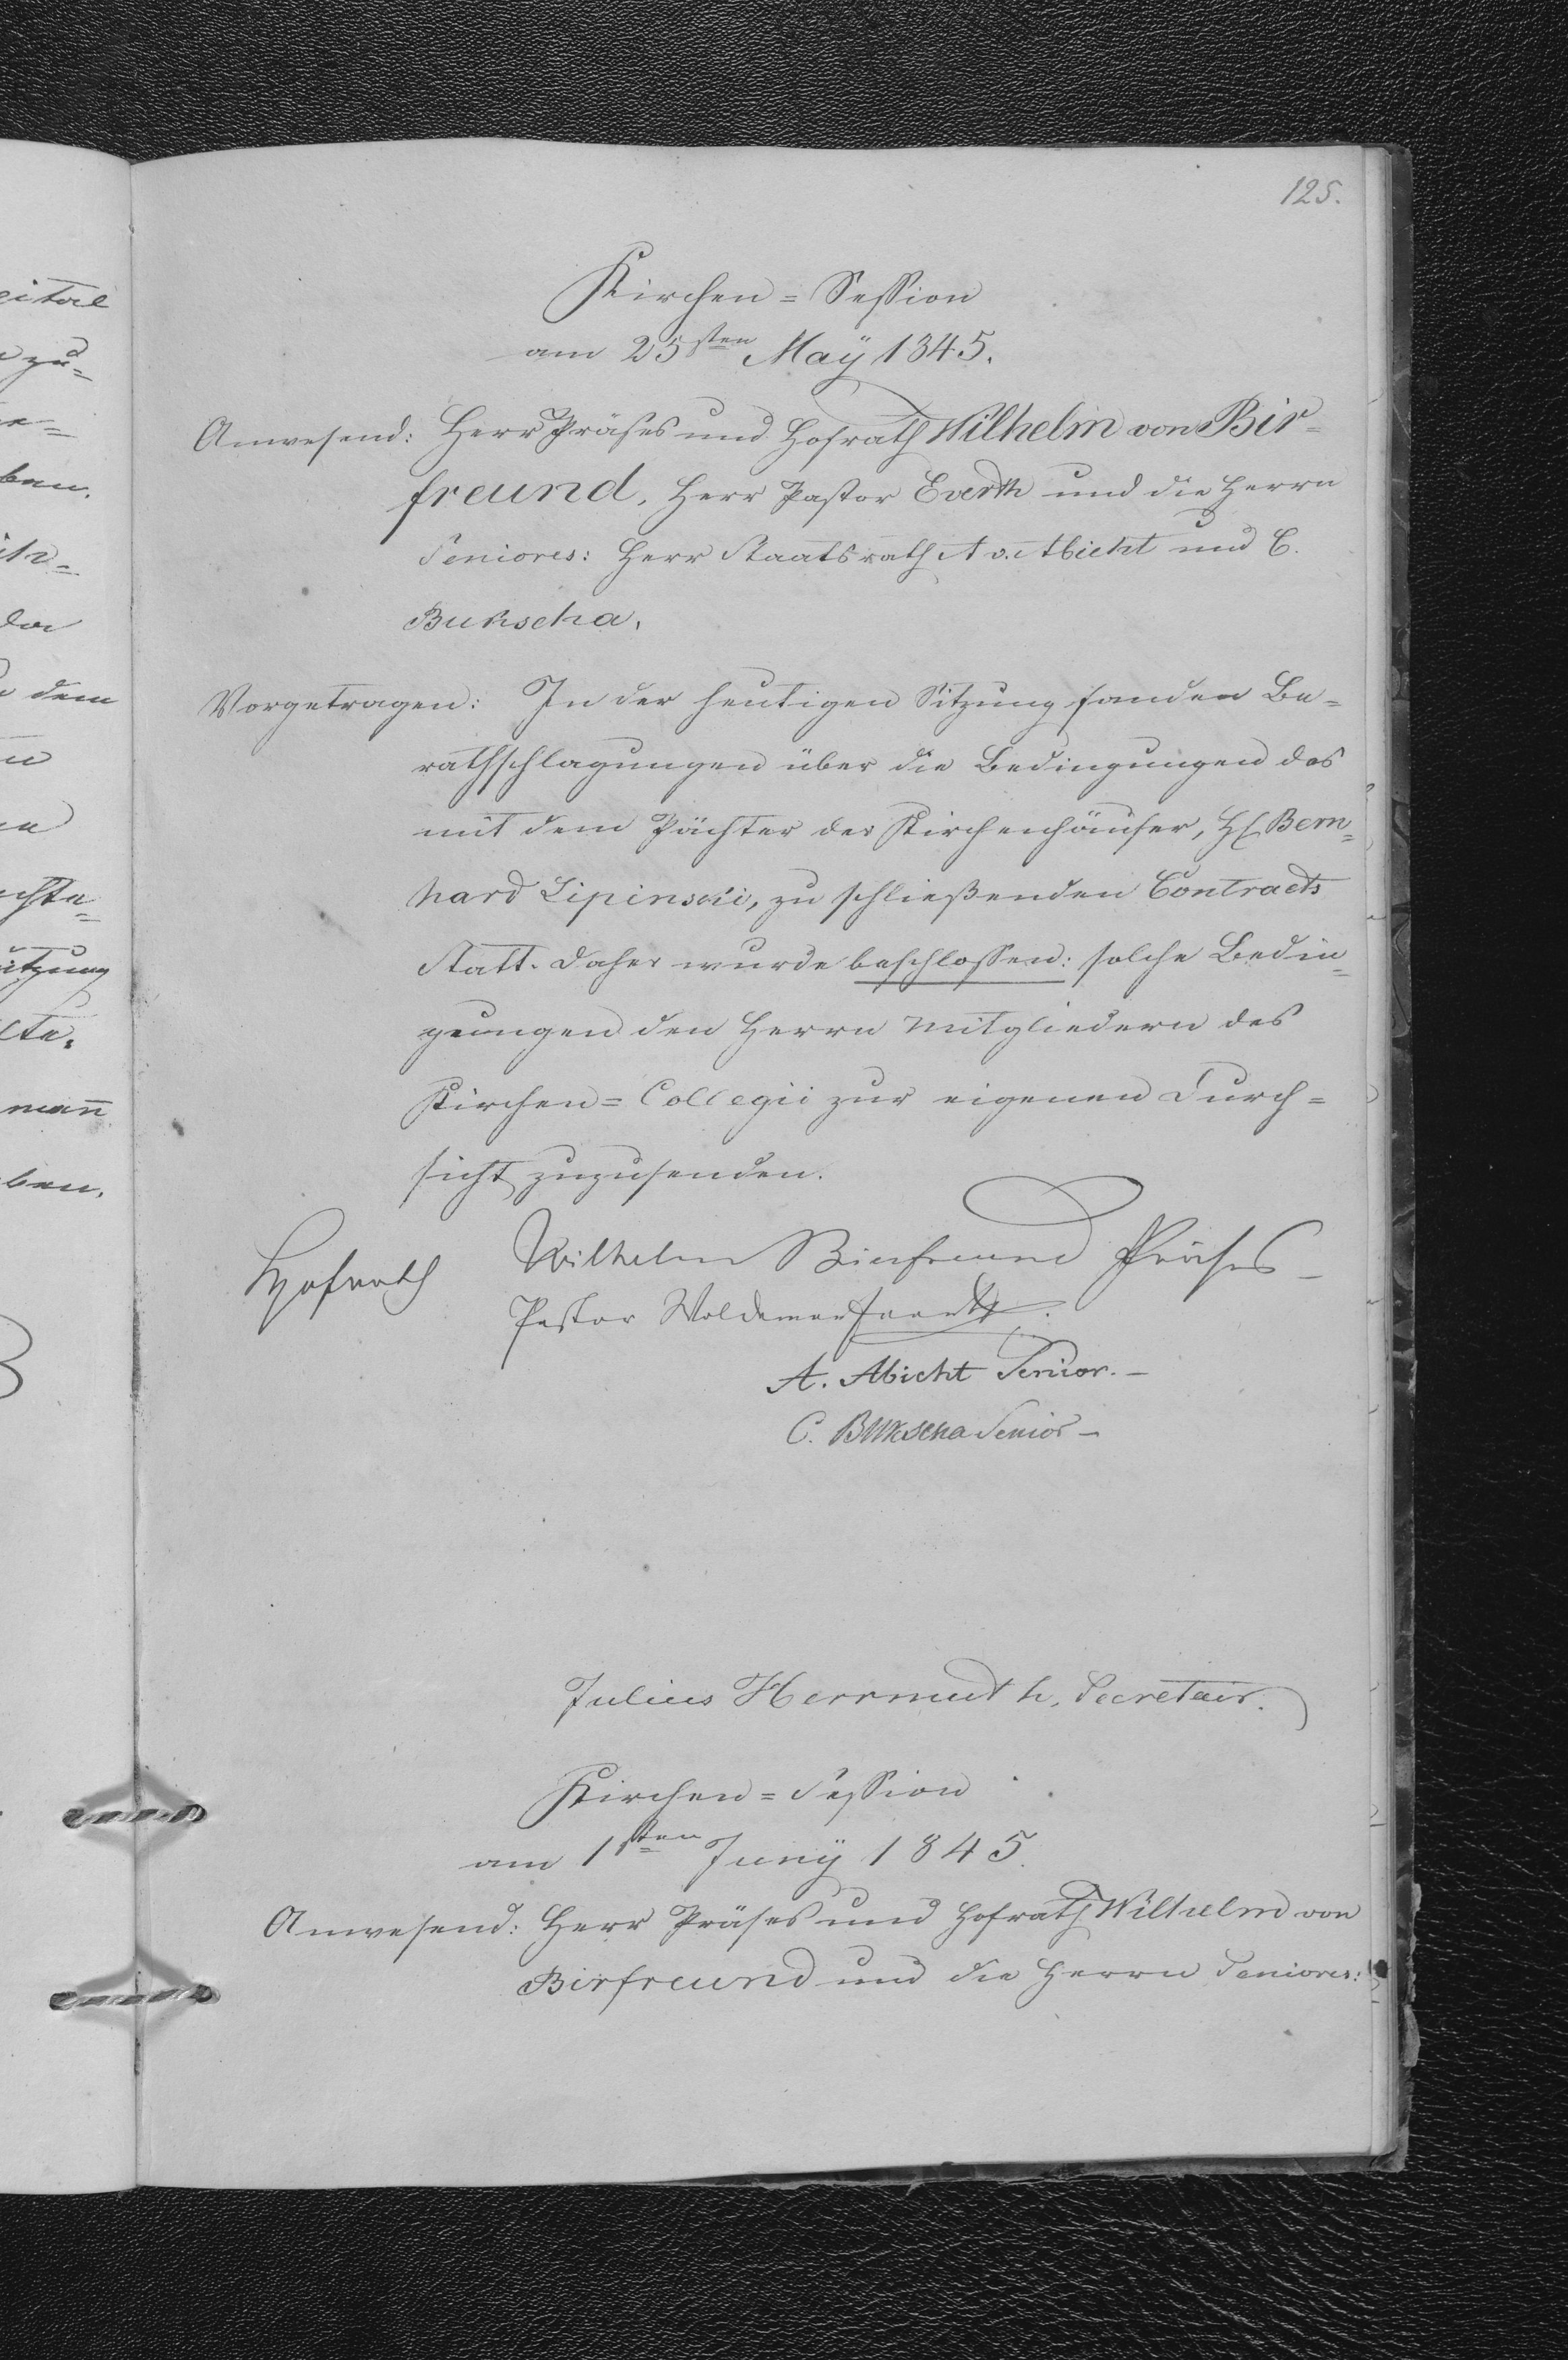 125.
Kirchen = Session
am 25sten Maÿ 1845.
Anwesend: Herr Präses und Hofrath Wilhelm von Bir=
freund, Herr Pastor Everth und die Herrn
Seniores: Herr Staatsrath A v. Abicht und C.
Bukscha.
Vorgetragen: In der heutigen Sitzung fanden Be=
rathschlagungen über die Bedingungen des
mit dem Pächter der Kirchenhäuser, H. Bern=
hard Lipinski, zu schließenden Contracts
Statt. Daher wurde beschlossen: solche Bedin=
gungen den Herrn Mitgliedern des
Kirchen = Collegii zur eigenen Durch=
sicht zuzusenden.
Hofrath Wilhelm Birfreund Präses
Pastor Woldemar Everth.
A. Abicht Senior. –
C. Bukscha Senior –
Julius Herrmuth, Secretair.
Kirchen = Session
am 1sten Junÿ 1845.
Anwesend: Herr Präses und Hofrath Wilhelm von
Birfreund und die Herrn Seniores: